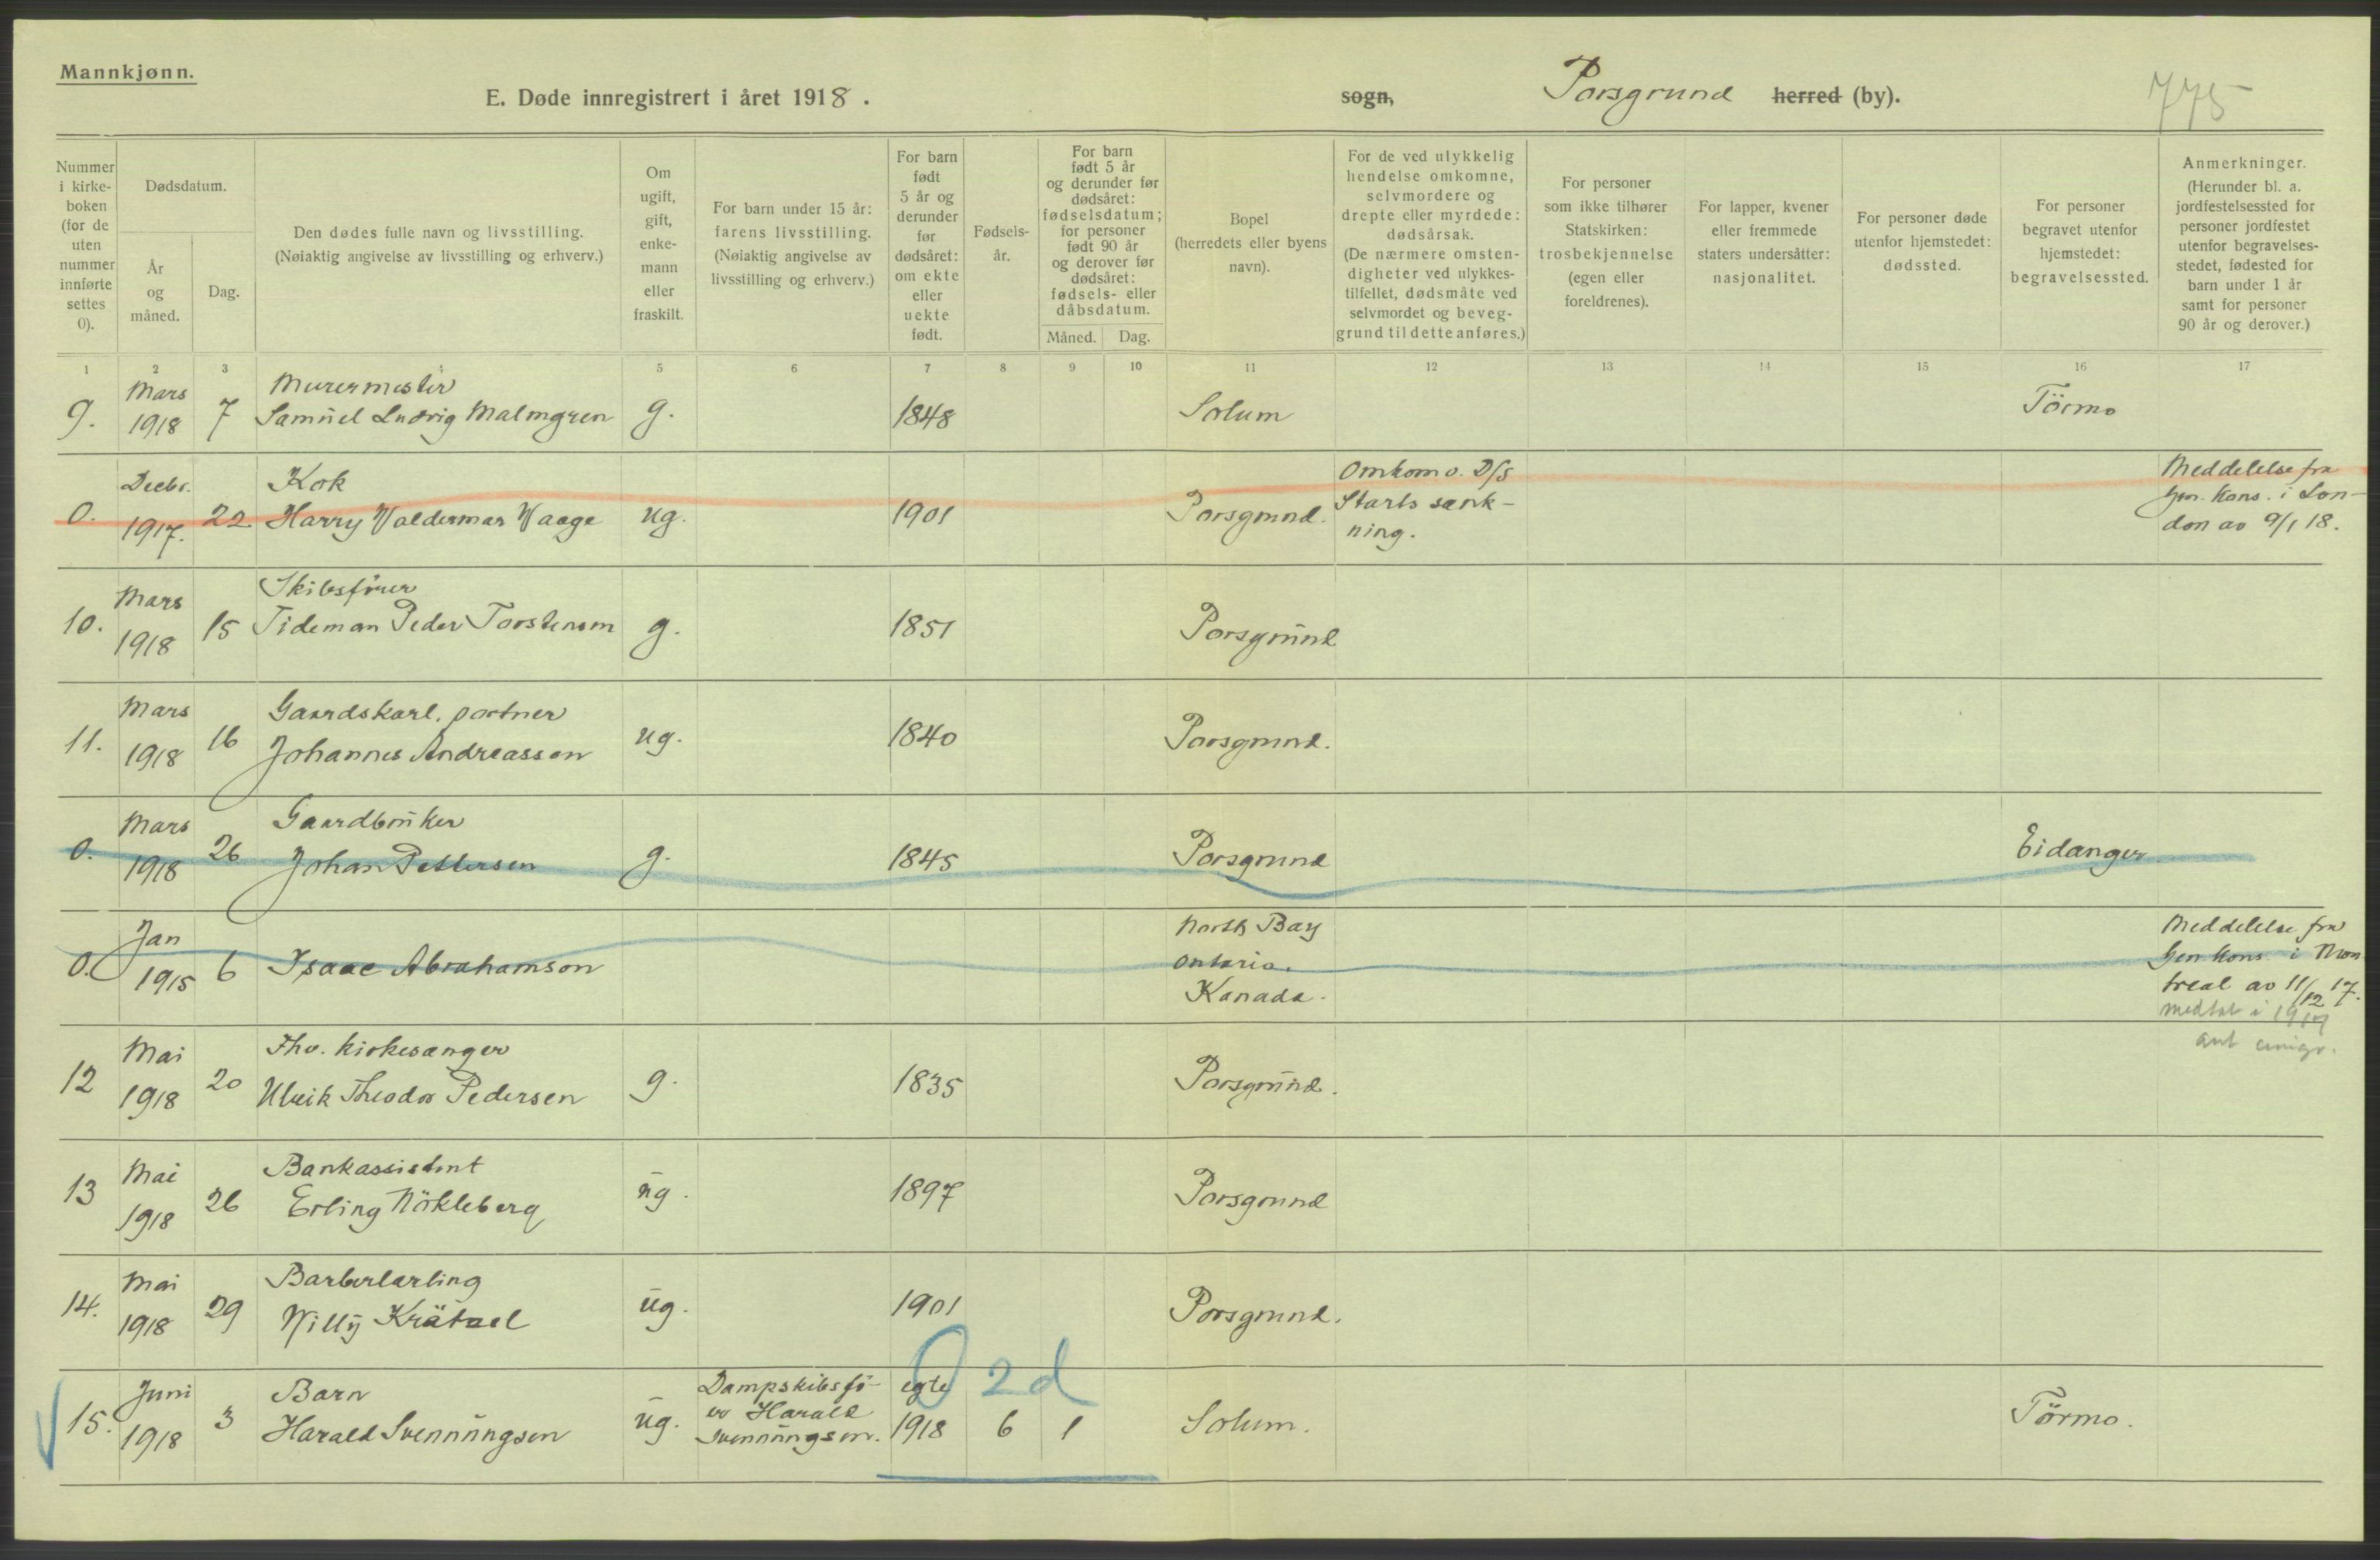 Mannkjønn.
E. Døde innregistrert i året 1918.
sogn, Porsgrund herred (by).
775
Nummer i kirke-boken (for de uten nummer innførte settes 0).
Dødsdatum.
År og måned.
Dag.
Den dødes fulle navn og livsstilling.
(Nøiaktig angivelse av livsstilling og erhverv.)
Om ugift, gift, enke-mann eller fraskilt.
For barn under 15 år: farens livsstilling.
(Nøiaktig angivelse av livsstilling og erhverv.)
For barn født 5 år og derunder før dødsåret: om ekte eller uekte født.
Fødsels-år.
For barn født 5 år og derunder før dødsåret: fødselsdatum; for personer født 90 år og derover før dødsåret: fødsels- eller dåbsdatum.
Måned.
Dag.
Bopel (herredets eller byens navn).
For de ved ulykkelig hendelse omkomne, selvmordere og drepte eller myrdede: dødsårsak.
(De nærmere omsten-digheter ved ulykkes-tilfellet, dødsmåte ved selvmordet og beveg-grund til dette anføres.)
For personer som ikke tilhører Statskirken: trosbekjennelse (egen eller foreldrenes).
For lapper, kvener eller fremmede staters undersåtter: nasjonalitet.
For personer døde utenfor hjemstedet: dødssted.
For personer begravet utenfor hjemstedet: begravelsessted.
Anmerkninger.
(Herunder bl. a. jordfestelsessted for personer jordfestet utenfor begravelses-stedet, fødested for barn under 1 år samt for personer 90 år og derover.)
1 2 3 4 5 6 7 8 9 10 11 12 13 14 15 16 17
Mars Murermester
9. 1918 7 Samuel Ludvig Malmgren g. 1848 Solum Törmo
Decbr. Kok Omkom v. D/S Meddelelse fra
0. 1917. 22 Harry Waldermar Waage ug. 1901 Porsgrund. Starts sænk- Gen. Kons. i Lon-
ning. don av 9/1 18.
Mars Skibsfører
10. 1918 15 Tideman Peder Torstensen g. 1851 Porsgrund
Mars Gaardskarl, portner
11. 1918 16 Johannes Andreassen ug. 1840 Porsgrund.
Mars Gaardbruker
0. 1918 26 Johan Pettersen g. 1845 Porsgrund Eidanger
Jan North Bay Meddelelse fra
0. 1915 6 Isaac Abrahamson Ontario. Gen. Kons. i Mon
Kanada. treal av 11/12 17.
medtat i 1917
ant emigr.
Mai Fhv. kirkesanger
12 1918 20 Ulrik Theodor Pedersen g. 1835 Porsgrund.
Mai Bankassistent
13 1918 26 Erling Nökleberg ug. 1897 Porsgrund
Mai Barberlærling
14. 1918 29 Willy Krätzel ug. 1901 Porsgrund.
0 2d
Juni Barn Dampskibsfö- egte
15. 1918 3 Harald Svenningsen ug. er Harald 1918 6 1 Solum. Törmo.
Svenningsen.